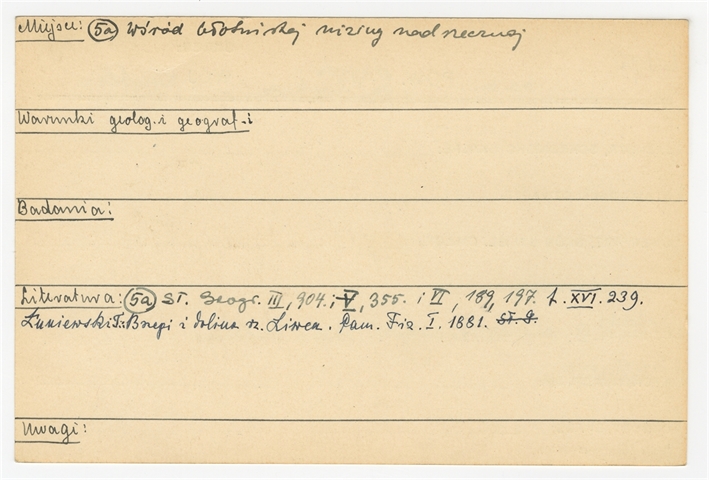 Miejsce: (5a) Wśród błotnistej niziny nadrzecznej
Warunki geolog. i geograf-i
Badania:
Literatura: (5a) Sł. Geogr. III, 904. i V, 355. i VI, 189, 197. Ł. XVI. 239.
Łuniewski T: Brzegi i dolina rz. Liwca. Pam. Fiz. I. 1881. Sł. G.
Uwagi: